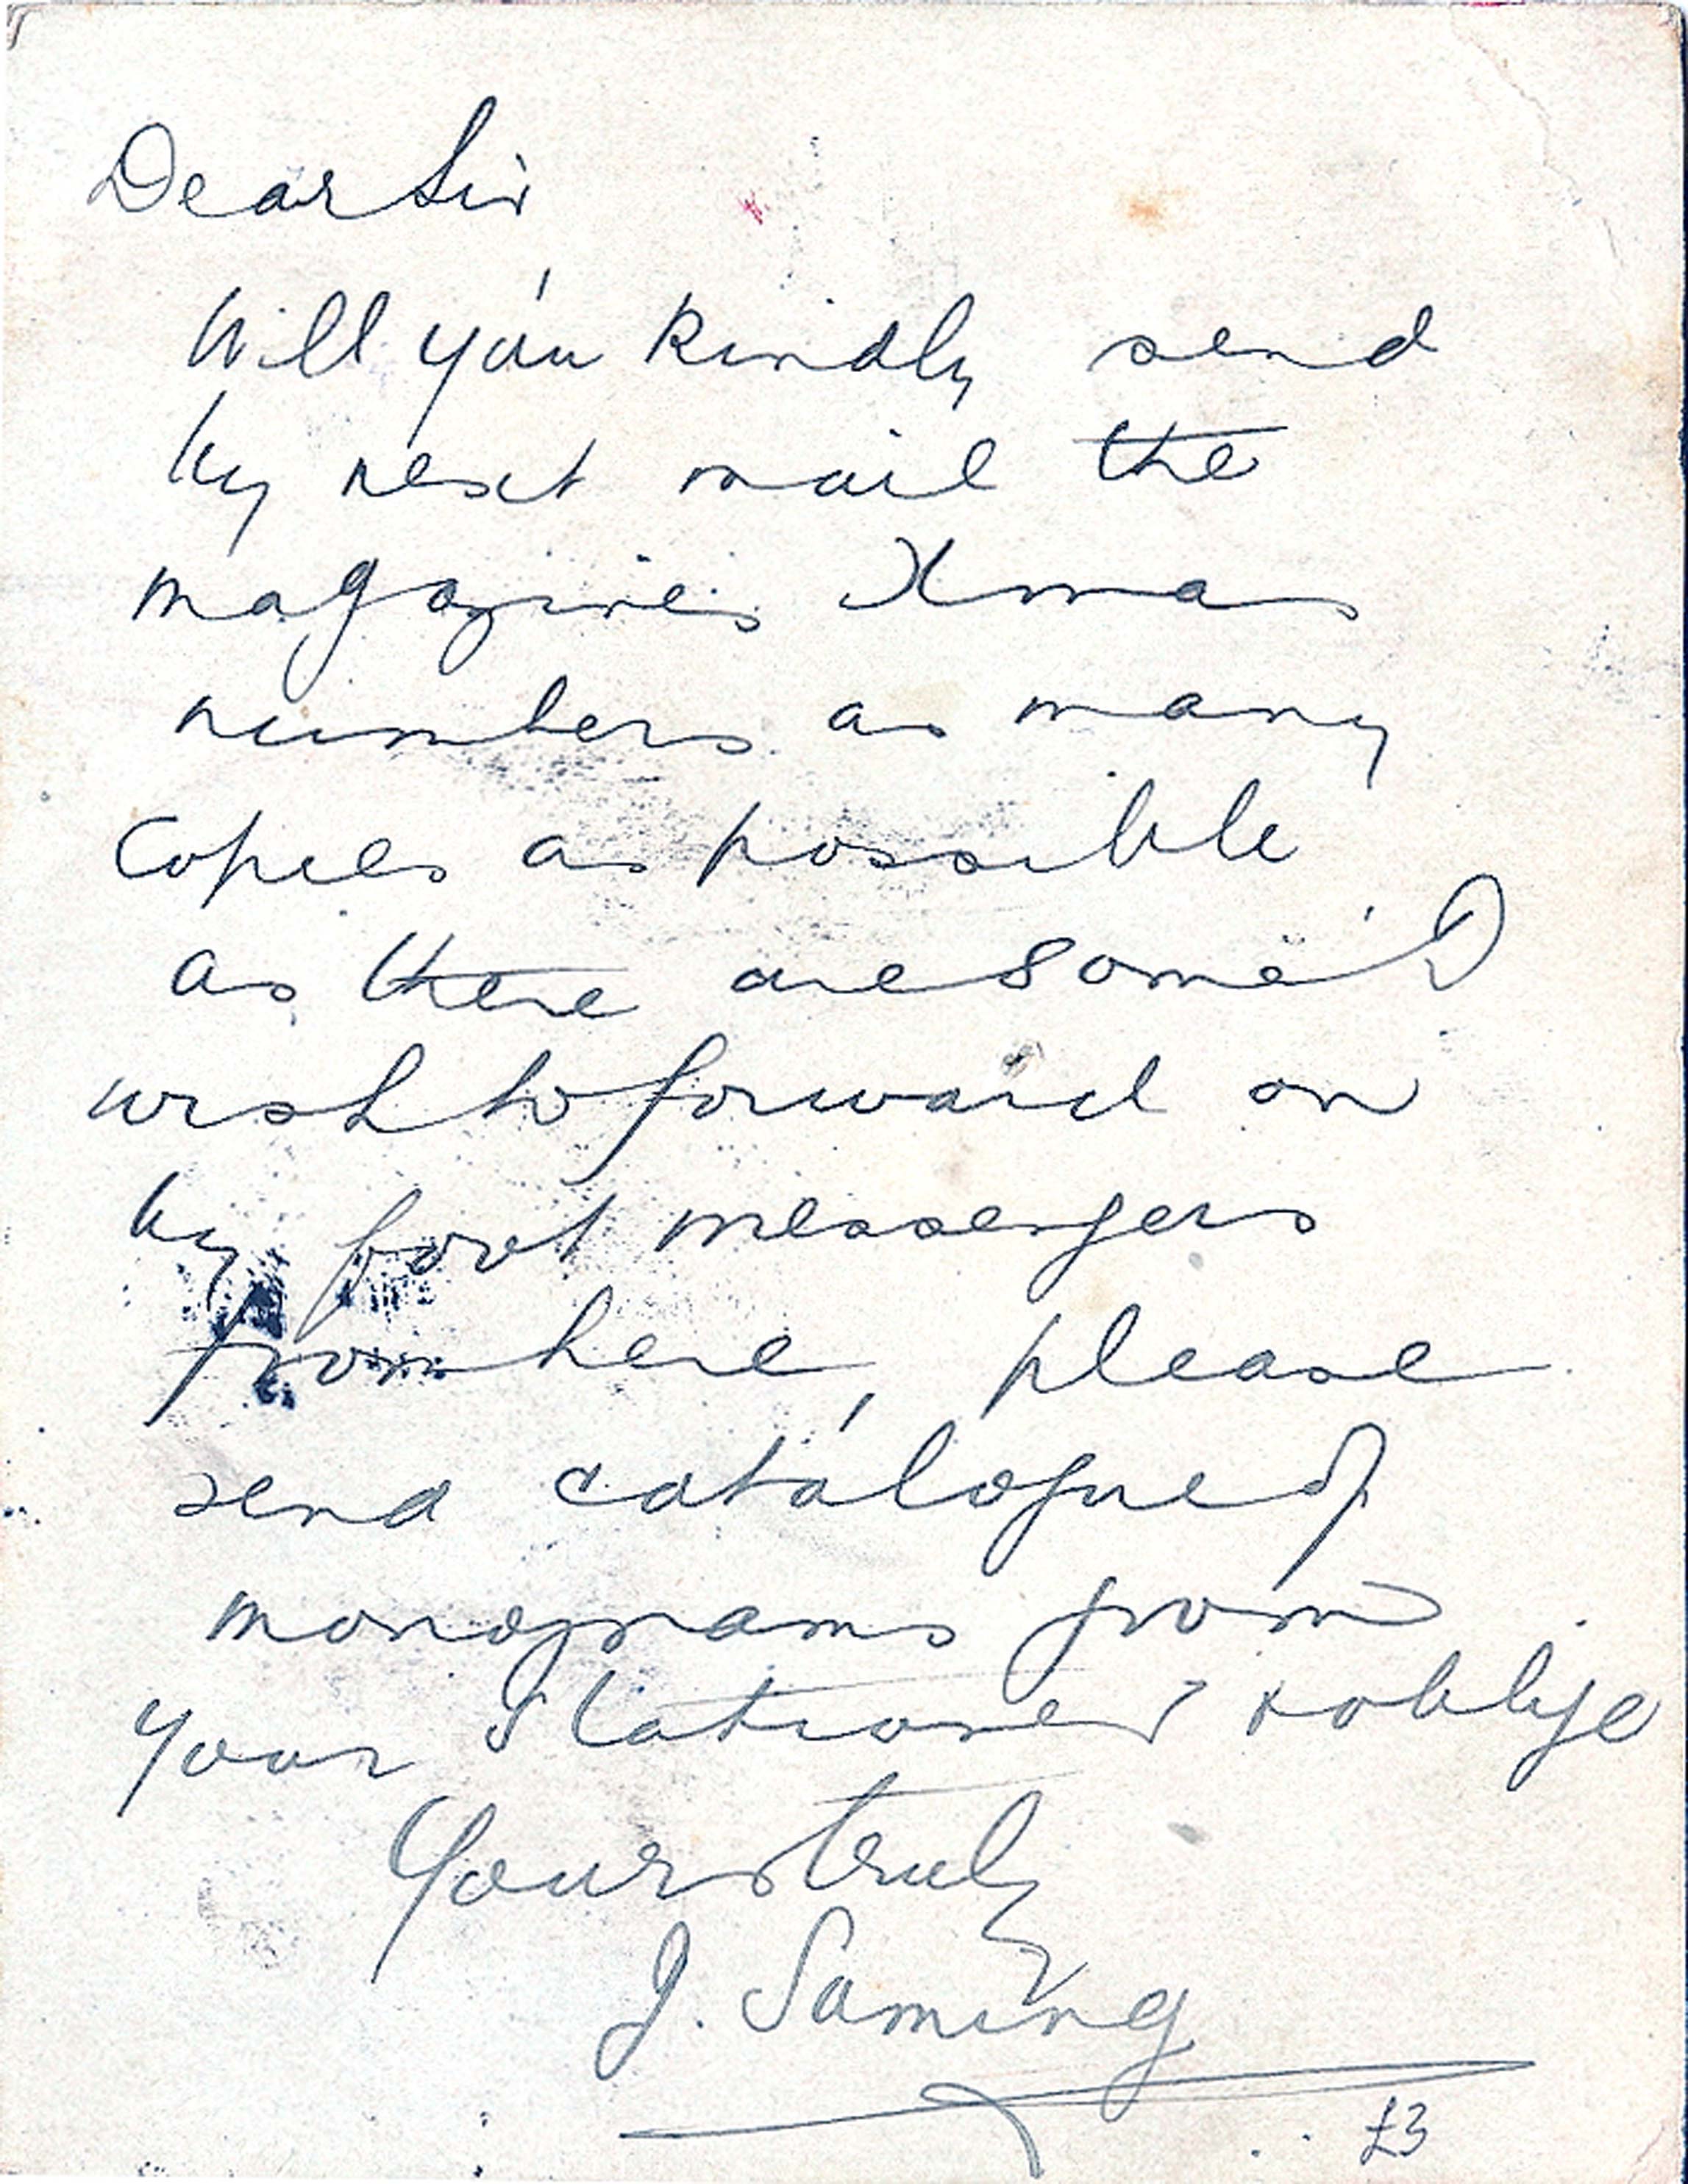 Dear Sir
Will you kindly send
by next mail the
magazines Xmas
numbers as many
copies as possible
as there are some I
wish to forward on
by foot messengers
from here, please
send catalogue of
monograms from
your Stationer & oblige
Yours truly
J. Saming
£3